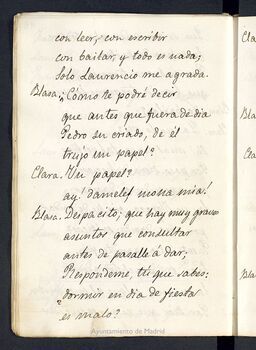 con leer, con escribir
con bailar, y todo es nada;
Solo Laurencio me agrada.
Blasa. ¿Cómo te podré decir
que antes que fuera de dia
Pedro su criado, de él
trujo un papel?
Clara. ¿Un papel?
ay! damele mona mia!
Blasa. Despacito; que hay muy graves
asuntos que consultar
antes de pasalle á dar;
Respóndeme, tú que sabes;
¿dormir en dia de fiesta
es malo?
Cla
Blasa
Cla
Blasa
Ayuntamiento de Madrid